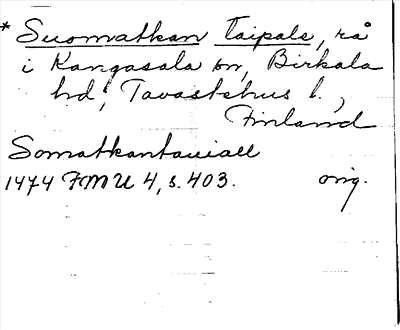 * Suomatkan taipale, rå
i Kangasala sn, Birkala
hd, Tavastehus l.,
Finland
Somatkantauiall
1474 FMU 4, s. 403. orig.